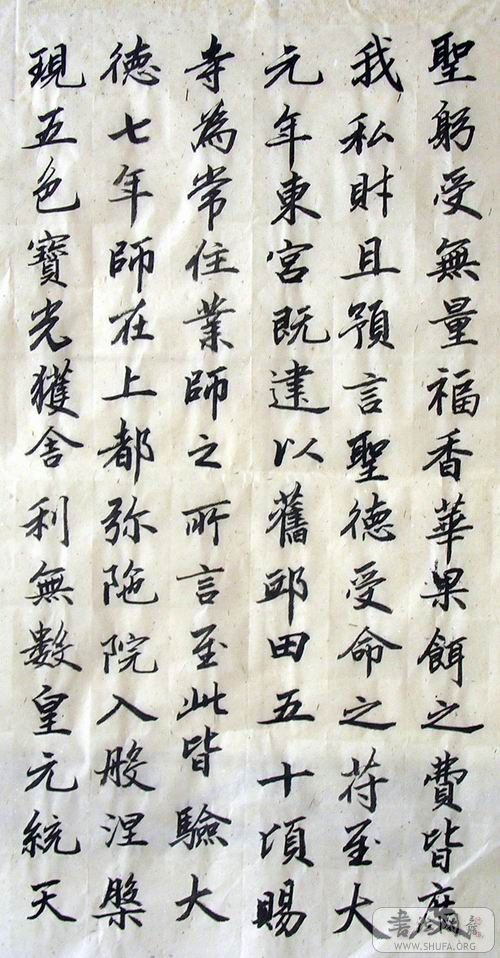 聖躬受無量福香華果餌之費皆度
我私財且預言聖德受命之苻至大
元年東宮既建以舊邸田五十頃賜
寺為常住業師之所言至此皆驗大
德七年師在上都弥陁院入般涅槃
現五色寶光獲舍利無數皇元統天
书法网
WWW.SHUFA.ORG